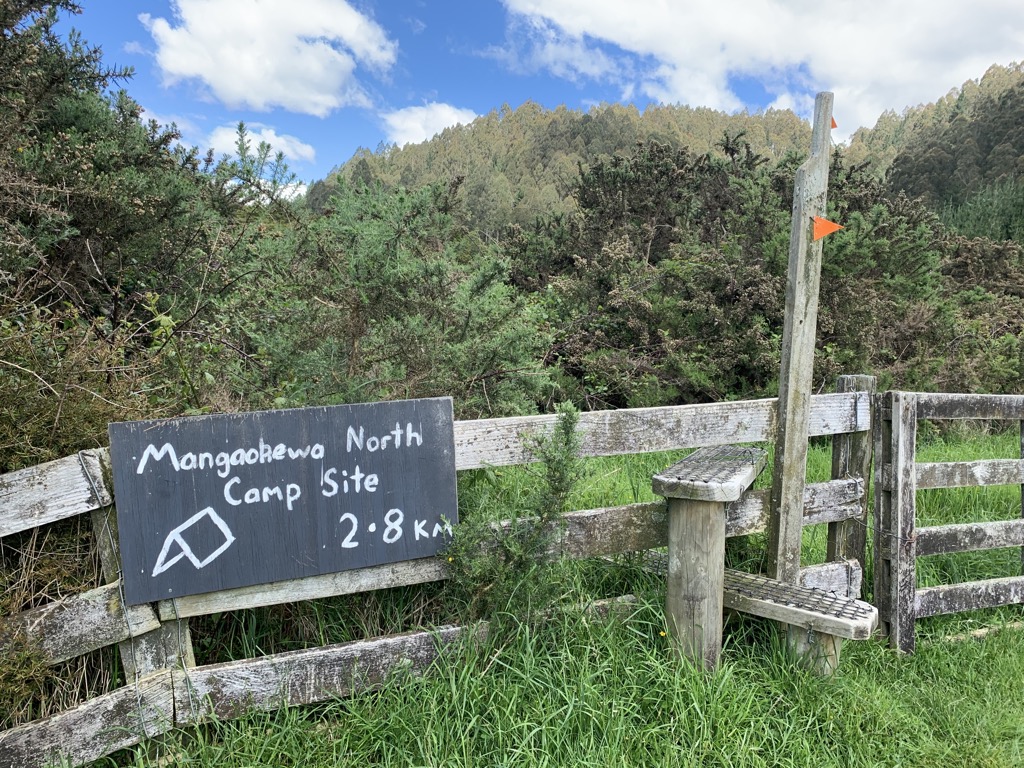 Mangaokewa North
Camp Site
2.8 KM